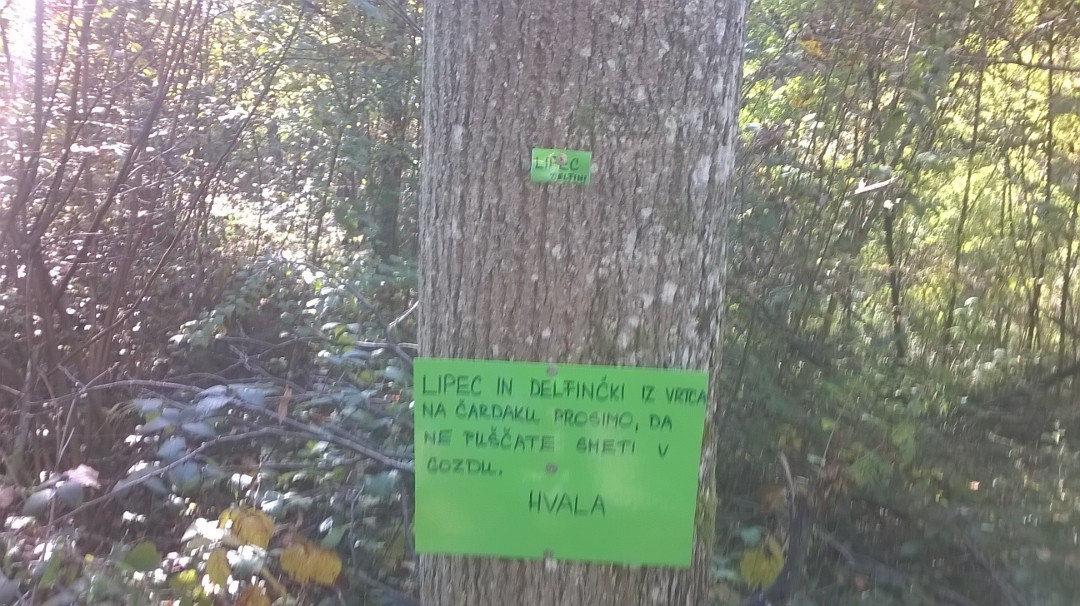 LIPEC
DELFINI
LIPEC IN DELFINČKI IZ VRTCA
NA ČARDAKU PROSIMO, DA
NE PUŠČATE SMETI V
GOZDU.
HVALA